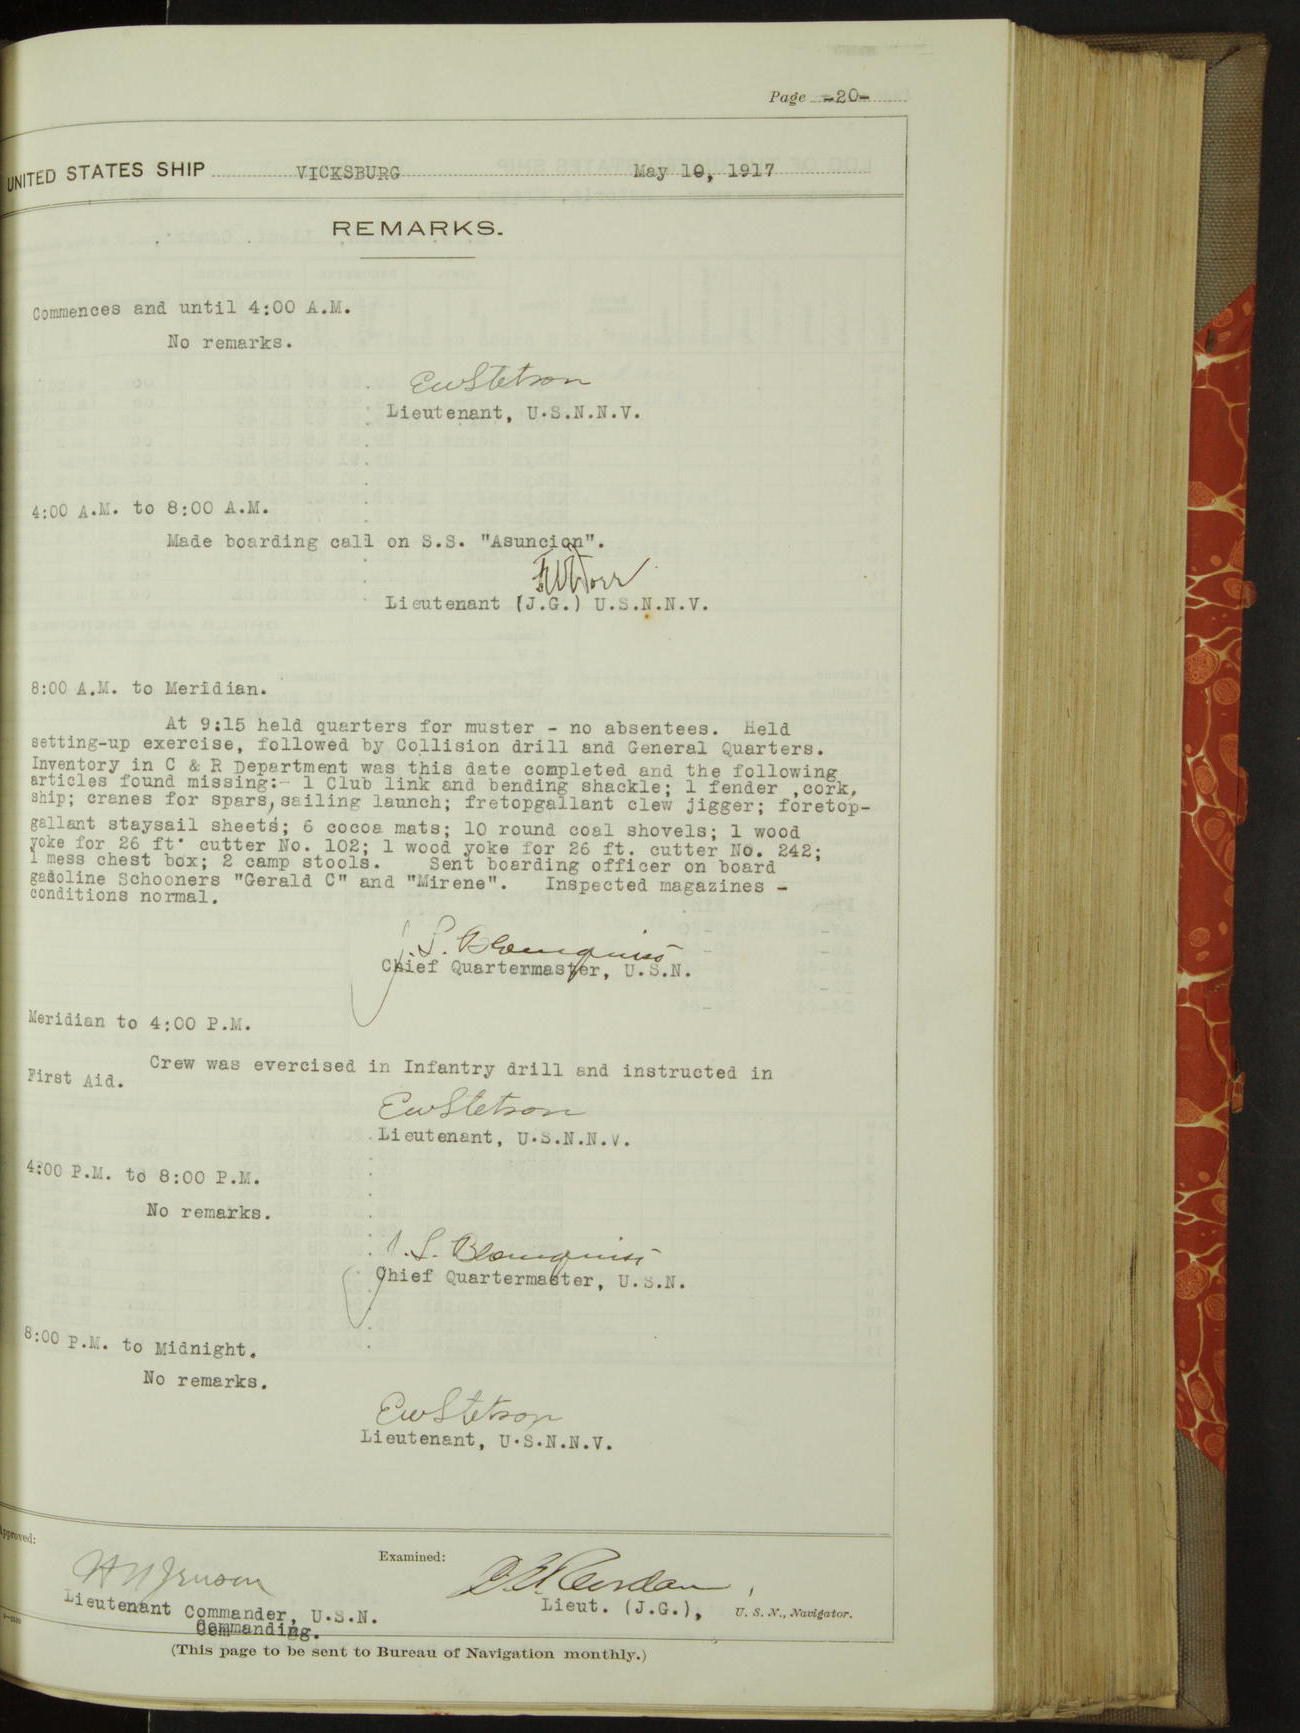 Page -20-
UNITED STATES SHIP VICKSBURG May 10, 1917
REMARKS.
Commences and until 4:00 A.M.
No remarks.
EWStetson
Lieutenant, U.S.N.N.V.
4:00 A.M. to 8:00 A.M.
Made boarding call on S.S. "Asuncion".
Lieutenant (J.G.) U.S.N.N.V.
8:00 A.M. to Meridian.
At 9:15 held quarters for muster - no absentees. Held
setting-up exercise, followed by Collision drill and General Quarters.
Inventory in C & R Department was this date completed and the following
articles found missing:- 1 Club link and bending shackle; 1 fender ,cork,
ship; cranes for spars, sailing launch; fretopgallant clew jigger; foretop-
gallant staysail sheets; 6 cocoa mats; 10 round coal shovels; 1 wood
yoke for 26 ft. cutter No. 102; 1 wood yoke for 26 ft. cutter No. 242;
1 mess chest box; 2 camp stools. Sent boarding officer on board
gasoline Schooners "Gerald C" and "Mirene". Inspected magazines -
conditions normal.
J. S. Blomquist
Chief Quartermaster, U.S.N.
Meridian to 4:00 P.M.
Crew was evercised in Infantry drill and instructed in
First Aid.
EWStetson
Lieutenant, U.S.N.N.V.
4:00 P.M. to 8:00 P.M.
No remarks.
J. S. Blomquist
Chief Quartermaster, U.S.N.
8:00 P.M. to Midnight.
No remarks.
EWStetson
Lieutenant, U.S.N.N.V.
Approved:
Examined:
Lieutenant Commander, U.S.N.
Commanding.
Lieut. (J.G.), U. S. N., Navigator.
(This page to be sent to Bureau of Navigation monthly.)